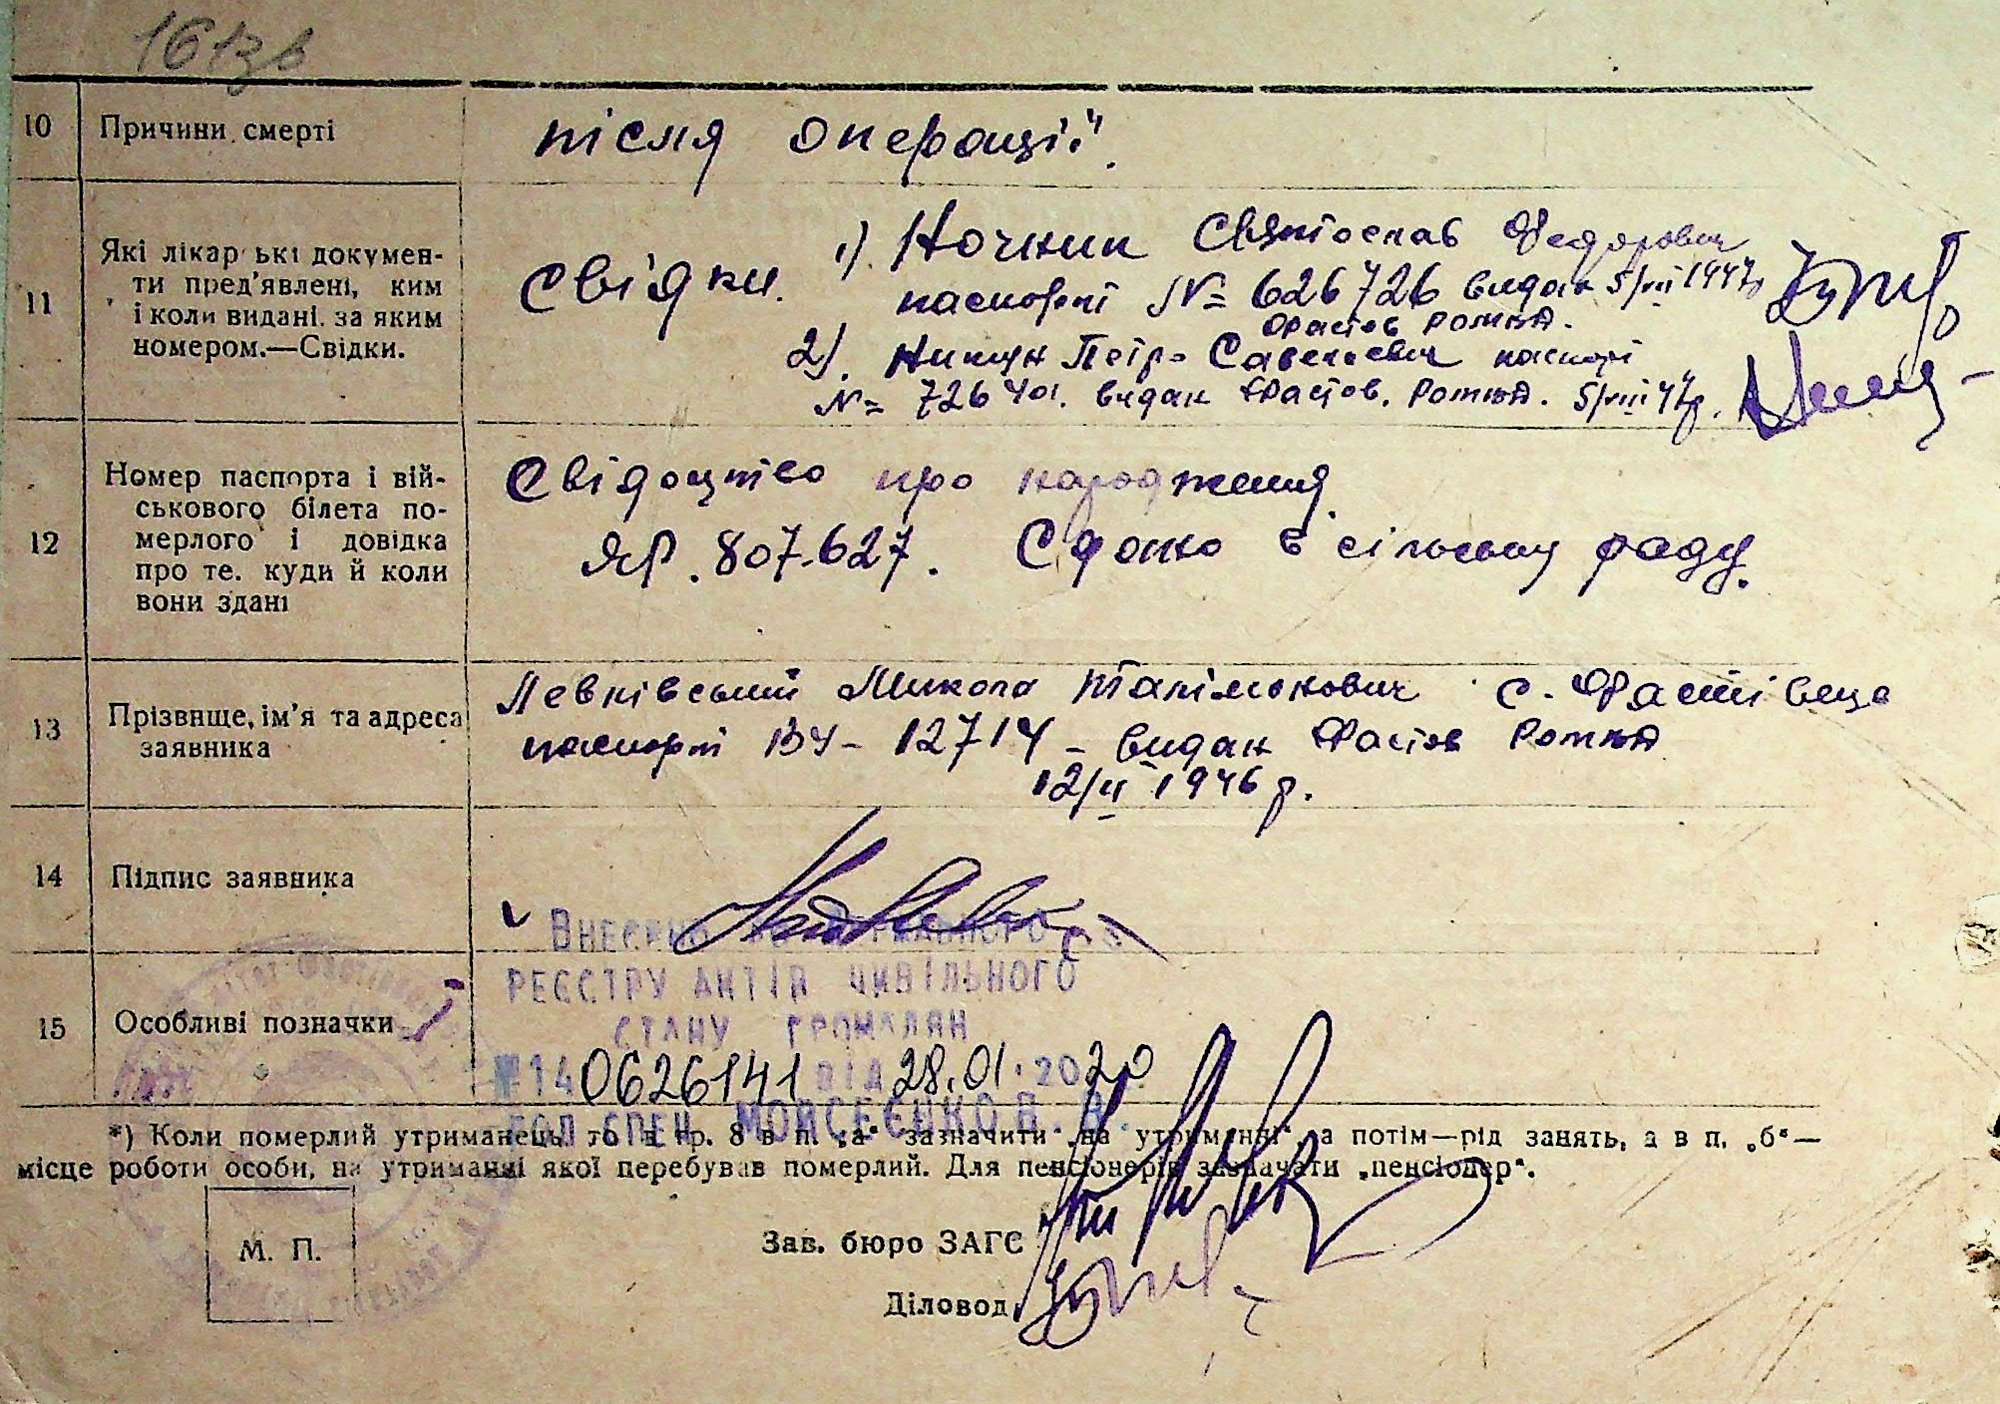 161зв
10 Причини смерті після операції.
11 Які лікарські докумен-
ти пред'явлені, ким
і коли видані, за яким
номером.—Свідки.
Свідки. 1) Святослав Федорович
паспорт № 626726 видан 5/VII 1947р
Фастов РОМВД.
2). Петро Савельевич паспорт
№ 726401. видан Фастов. РОМВД. 5/VIII 47р.
12 Номер паспорта і вій-
ськового білета по-
мерлого і довідка
про те, куди й коли
вони здані
Свідоцтво про народження
ЯР. 807.627. Сдано в сільську раду.
13 Прізвище, ім'я та адреса
заявника
Левківський Микола с. Фастівець
паспорт 12714 - видан Фастов РОМВД
12/II 1946 р.
14 Підпис заявника
15 Особливі позначки
Внесено до Державного
реєстру актів цивільного
стану громадян
№ 140626141 від 28.01.2020
Гол. спец. Мойсеєнко В. В.
*) Коли померлий утриманець, то в гр. 8 в п. „а“ зазначити „на утриманні“, а потім—рід занять, а в п. „б“—
місце роботи особи, на утриманні якої перебував померлий. Для пенсіонерів зазначати „пенсіонер“.
М. П.
Зав. бюро ЗАГС
Діловод